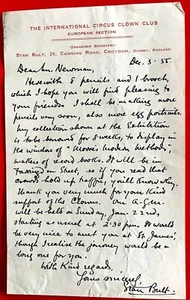 THE INTERNATIONAL CIRCUS CLOWN CLUB
EUROPEAN SECTION
ORGANISER SECRETARY
STAN BULT, 26, CAMPING ROAD, CROYDON, SURREY, ENGLAND.
Dec. 3. 55.
Dear Mr. Newman,
Herewith 6 pencils and 1 brooch
which I hope you will find pleasing to
your friends. I shall be making more
pencils any soon; also more egg portraits.
My collection shown at the Exhibition
is to be housed for 3 weeks, to Xmas, in
the window of Morris's Modern Methods,
makers of record books. It will be in
Farringdon Street, so if you read that
crowds held up traffic, you'll know why.
Thank you very much for your kind
support of the Clowns. Our A. Gen.
will be held on Sunday, Jan. 22nd,
starting as usual at 2.30 p.m. It would
be very nice to meet you at St. James's,
though I realise the journey would be a
long one for you.
With kind regards,
Yours sincerely
Stan Bult.